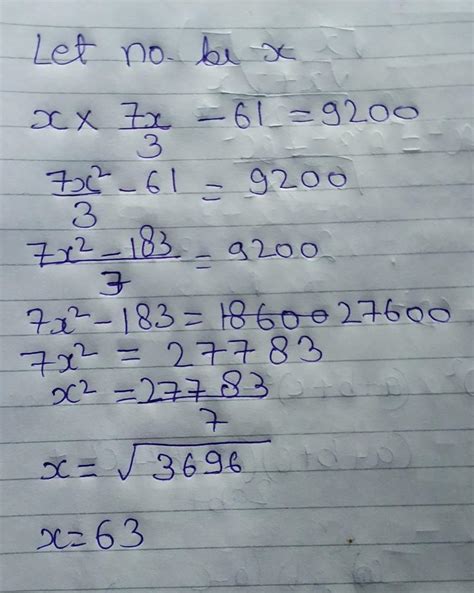 Let no. be x
x × 7x/3 - 61 = 9200
7x²/3 - 61 = 9200
7x² - 183/3 = 9200
7x² - 183 = 18600 27600
7x² = 27783
x² = 27783/7
x = √3696
x = 63